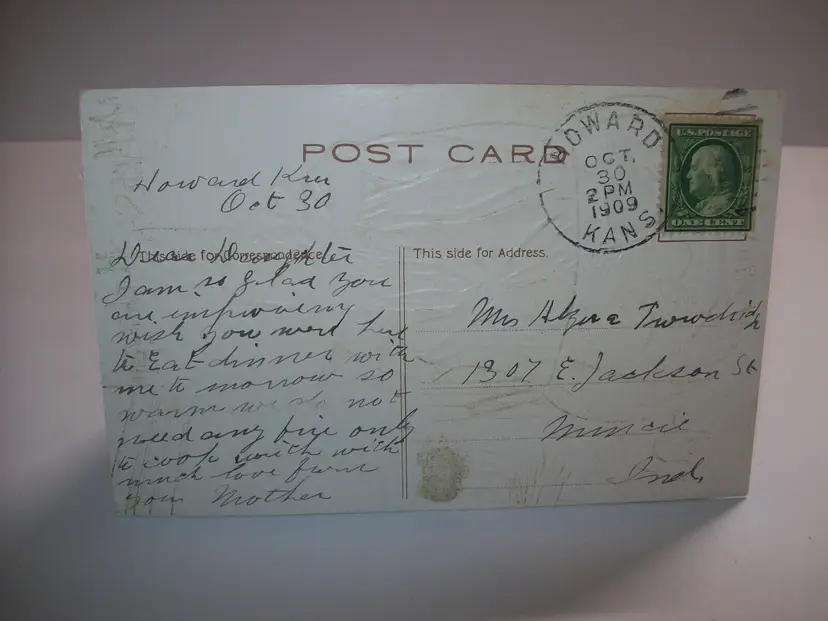 POST CARD
HOWARD
OCT.
30
2 PM
1909
KANS.
U.S. POSTAGE
ONE CENT
Howard
Oct 30
This side for Correspondence.
Dear Daughter
I am so glad you
are improveing
wish you were here
to Eat dinner with
me to morrow so
warm we do not
need any fire only
to cook with with
much love from
your Mother
This side for Address.
Mrs
1307 E. Jackson St
Muncie
Ind.